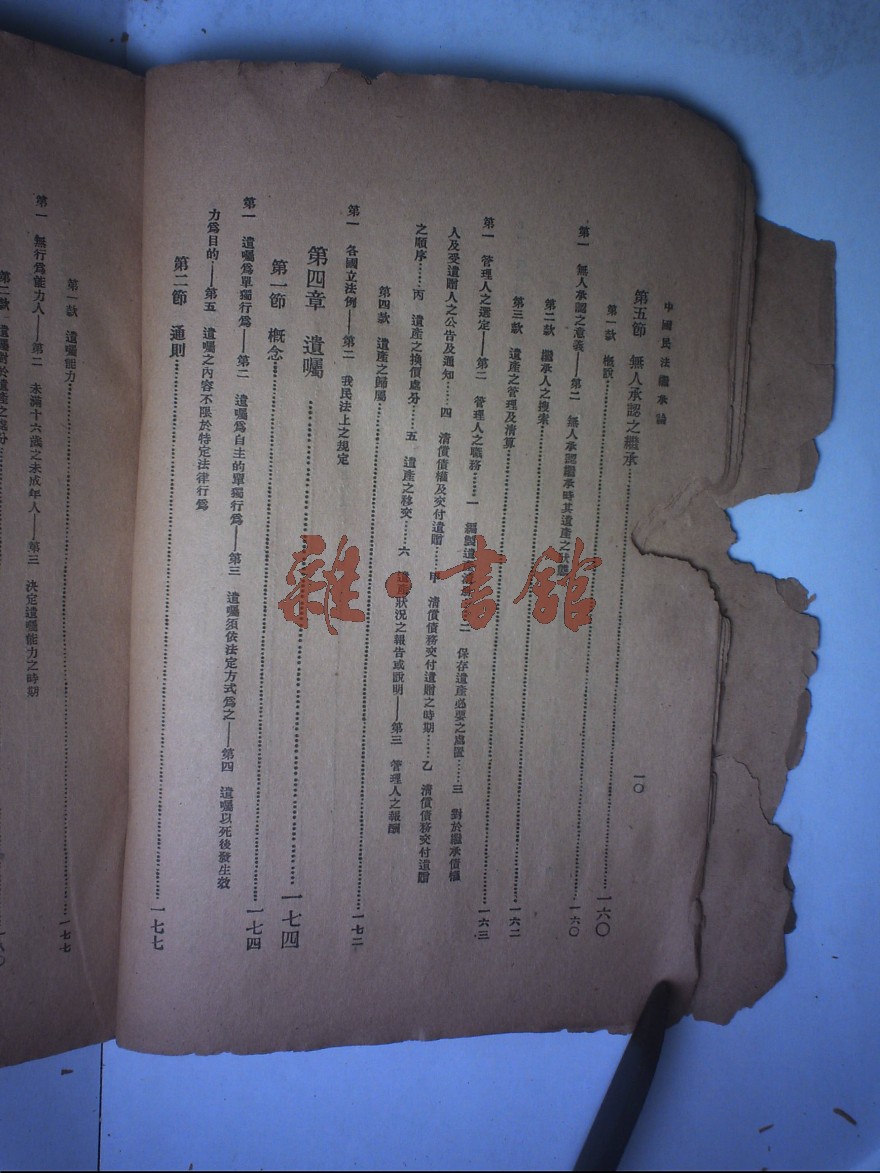 中國民法繼承論 一〇
第五節 無人承認之繼承……一六〇
第一款 概說……一六〇
第一 無人承認之意義——第二 無人承認繼承時其遺產之狀態
第二款 繼承人之搜索……一六二
第三款 遺產之管理及清算……一六三
第一 管理人之選定——第二 管理人之職務……一 編製遺產 二 保存遺產必要之處置……三 對於繼承債權
人及受遺贈人之公告及通知……四 清償債權及交付遺贈……甲 清償債務交付遺贈之時期……乙 清償債務交付遺贈
之順序……丙 遺產之換價處分……五 遺產之移交……六 遺產狀況之報告或說明——第三 管理人之報酬
第四款 遺產之歸屬……一七二
第一 各國立法例——第二 我民法上之規定
第四章 遺囑……一七四
第一節 概念……一七四
第一 遺囑爲單獨行爲——第二 遺囑爲自主的單獨行爲——第三 遺囑須依法定方式爲之——第四 遺囑以死後發生效
力爲目的——第五 遺囑之內容不限於特定法律行爲
第二節 通則……一七七
第一款 遺囑能力……一七七
第一 無行爲能力人——第二 未滿十六歲之未成年人——第三 決定遺囑能力之時期
第二款 遺囑對於遺產之處分
雜·書館